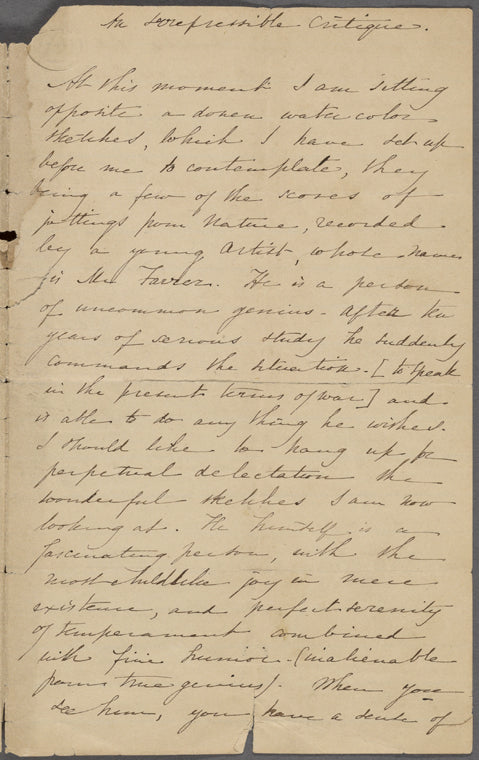 An Irrepressible Critique.
At this moment I am sitting
opposite a dozen water color
sketches, which I have set up
before me to contemplate, they
being a few of the scores of
jottings from Nature, recorded
by a young Artist, whose name
is Mr Farrer. He is a person
of uncommon genius. After ten
years of serious study he suddenly
commands the situation. [to speak
in the present terms of war] and
is able to do any thing he wishes.
I should like to hang up for
perpetual delectation the
wonderful sketches I am now
looking at. He himself is a
fascinating person, with the
most childlike joy in mere
existence, and perfect serenity
of temperament combined
with fine humor. (inalienable
from true genius). When you
see him, you have a sense of